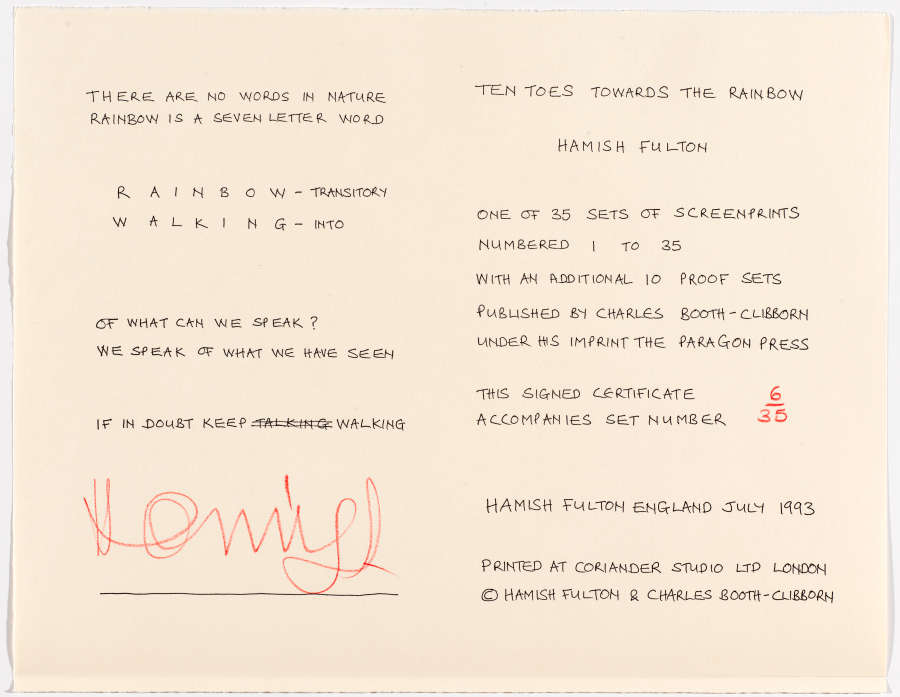 THERE ARE NO WORDS IN NATURE
RAINBOW IS A SEVEN LETTER WORD
R A I N B O W - TRANSITORY
W A L K I N G - INTO
OF WHAT CAN WE SPEAK?
WE SPEAK OF WHAT WE HAVE SEEN
IF IN DOUBT KEEP TALKING WALKING
Hamish
TEN TOES TOWARDS THE RAINBOW
HAMISH FULTON
ONE OF 35 SETS OF SCREENPRINTS
NUMBERED 1 TO 35
WITH AN ADDITIONAL 10 PROOF SETS
PUBLISHED BY CHARLES BOOTH-CLIBBORN
UNDER HIS IMPRINT THE PARAGON PRESS
THIS SIGNED CERTIFICATE
ACCOMPANIES SET NUMBER 6/35
HAMISH FULTON ENGLAND JULY 1993
PRINTED AT CORIANDER STUDIO LTD LONDON
© HAMISH FULTON & CHARLES BOOTH-CLIBBORN